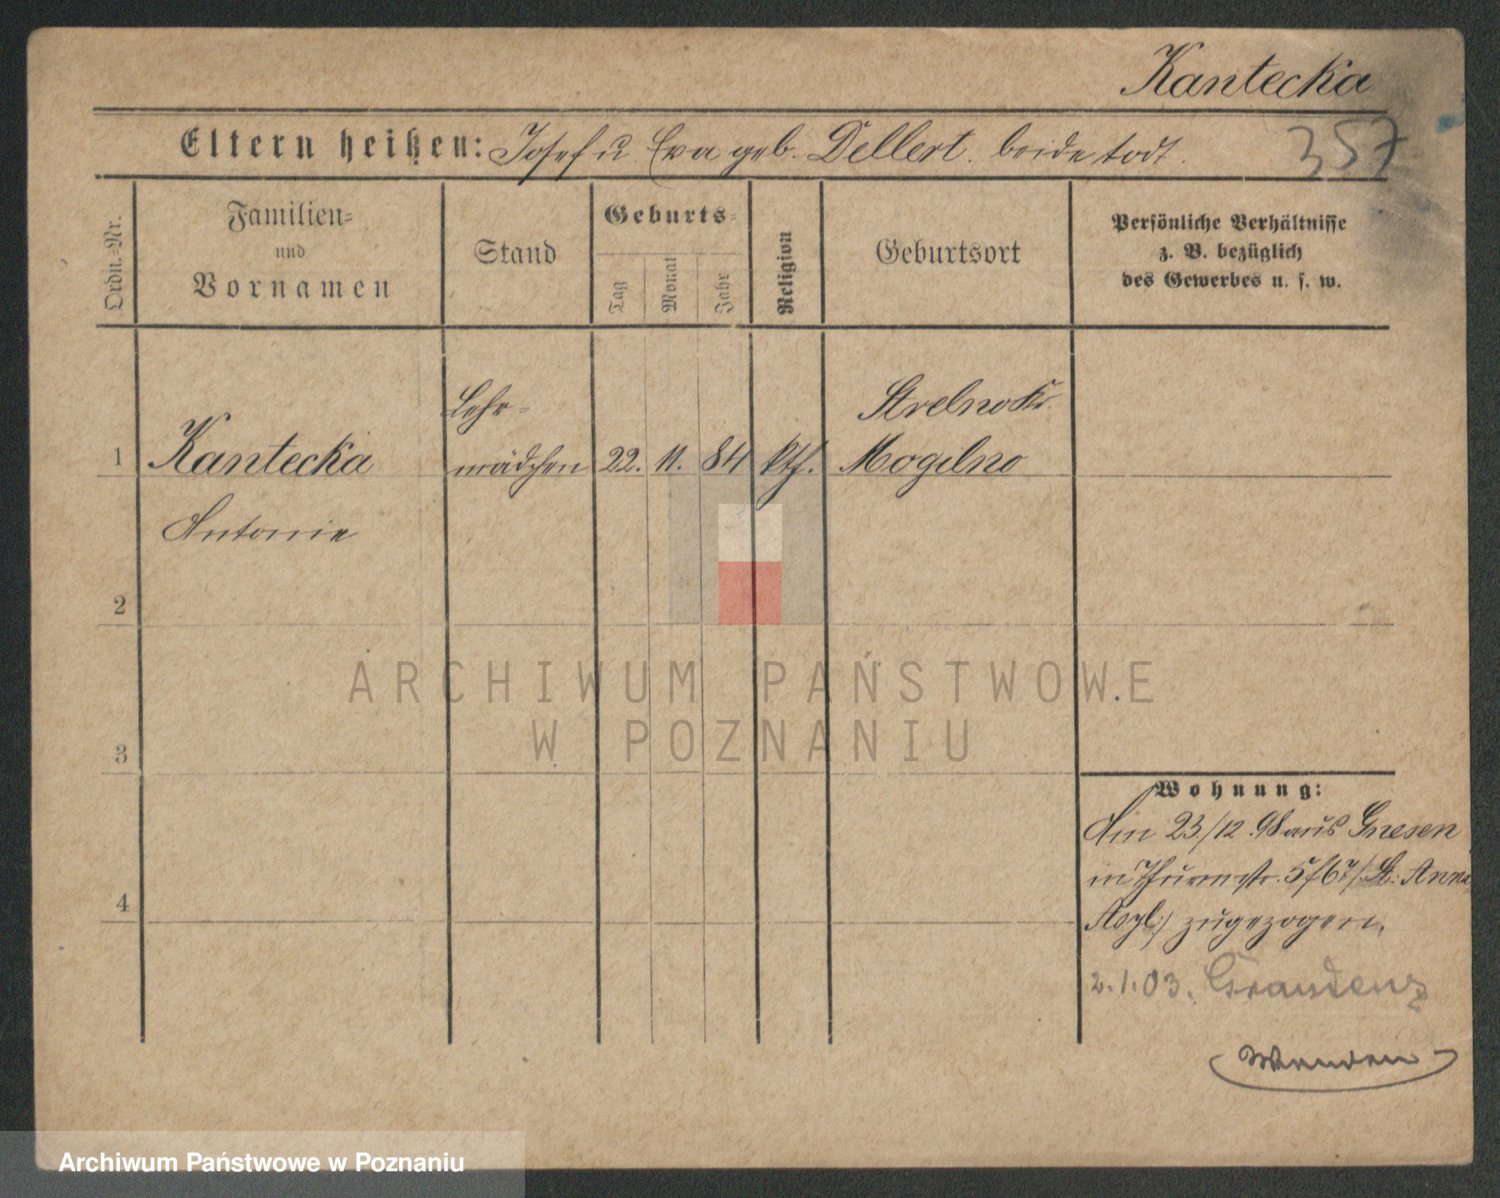 Kantecka
Eltern heißen: Josef u Eva geb. Dellert. beide todt.
357
Ordn.-Nr.
Familien-
und
Vornamen
Stand
Geburts-
Tag
Monat
Jahr
Religion
Geburtsort
Persönliche Verhältnisse
z. B. bezüglich
des Gewerbes u. s. w.
Lehr-
Strelno Kr.
1 Kantecka mädchen 22. 11. 84 kth. Mogilno
Antonie
2
ARCHIWUM PAŃSTWOWE
W POZNANIU
3
Wohnung:
Am 23./12. 98 aus Gnesen
in Thurmstr. 5/67 St. Anna
zugezogen.
4
2.1.03. Graudenz
Archiwum Państwowe w Poznaniu